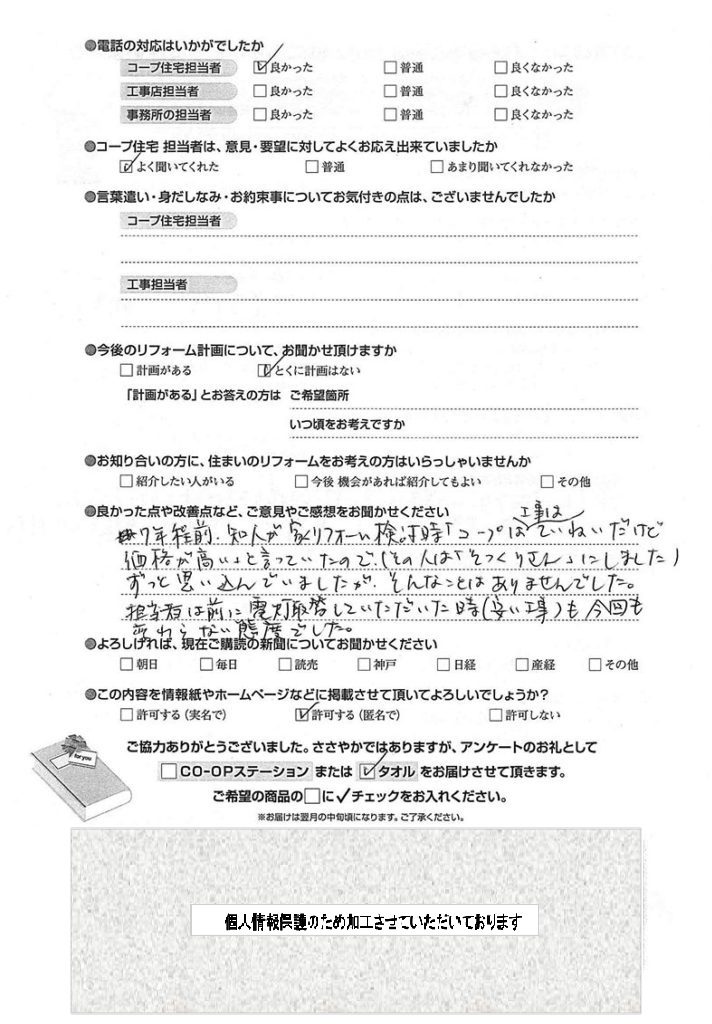 ●電話の対応はいかがでしたか
コープ住宅担当者 ☑良かった □普通 □良くなかった
工事店担当者 □良かった □普通 □良くなかった
事務所の担当者 □良かった □普通 □良くなかった
●コープ住宅 担当者は、意見・要望に対してよくお応え出来ていましたか
☑よく聞いてくれた □普通 □あまり聞いてくれなかった
●言葉遣い・身だしなみ・お約束事についてお気付きの点は、ございませんでしたか
コープ住宅担当者
工事担当者
●今後のリフォーム計画について、お聞かせ頂けますか
□計画がある ☑とくに計画はない
「計画がある」とお答えの方は ご希望箇所
いつ頃をお考えですか
●お知り合いの方に、住まいのリフォームをお考えの方はいらっしゃいませんか
□紹介したい人がいる □今後 機会があれば紹介してもよい □その他
●良かった点や改善点など、ご意見やご感想をお聞かせください
7年程前、知人が家リフォーム検討時「コープは工事はていねいだけど
価格が高い」と言っていたので、(その人は「そっくりさん」にしました)
ずっと思い込んでいましたが、そんなことはありませんでした。
担当者は前に電灯取替していただいた時(安い工事)も今回も
変わらない態度でした。
●よろしければ、現在ご購読の新聞についてお聞かせください
□朝日 □毎日 □読売 □神戸 □日経 □産経 □その他
●この内容を情報紙やホームページなどに掲載させて頂いてよろしいでしょうか?
□許可する(実名で) ☑許可する(匿名で) □許可しない
for you
ご協力ありがとうございました。ささやかではありますが、アンケートのお礼として
□CO-OPステーション または ☑タオル をお届けさせて頂きます。
ご希望の商品の□に✓チェックをお入れください。
※お届けは翌月の中旬頃になります。ご了承ください。
個人情報保護のため加工させていただいております